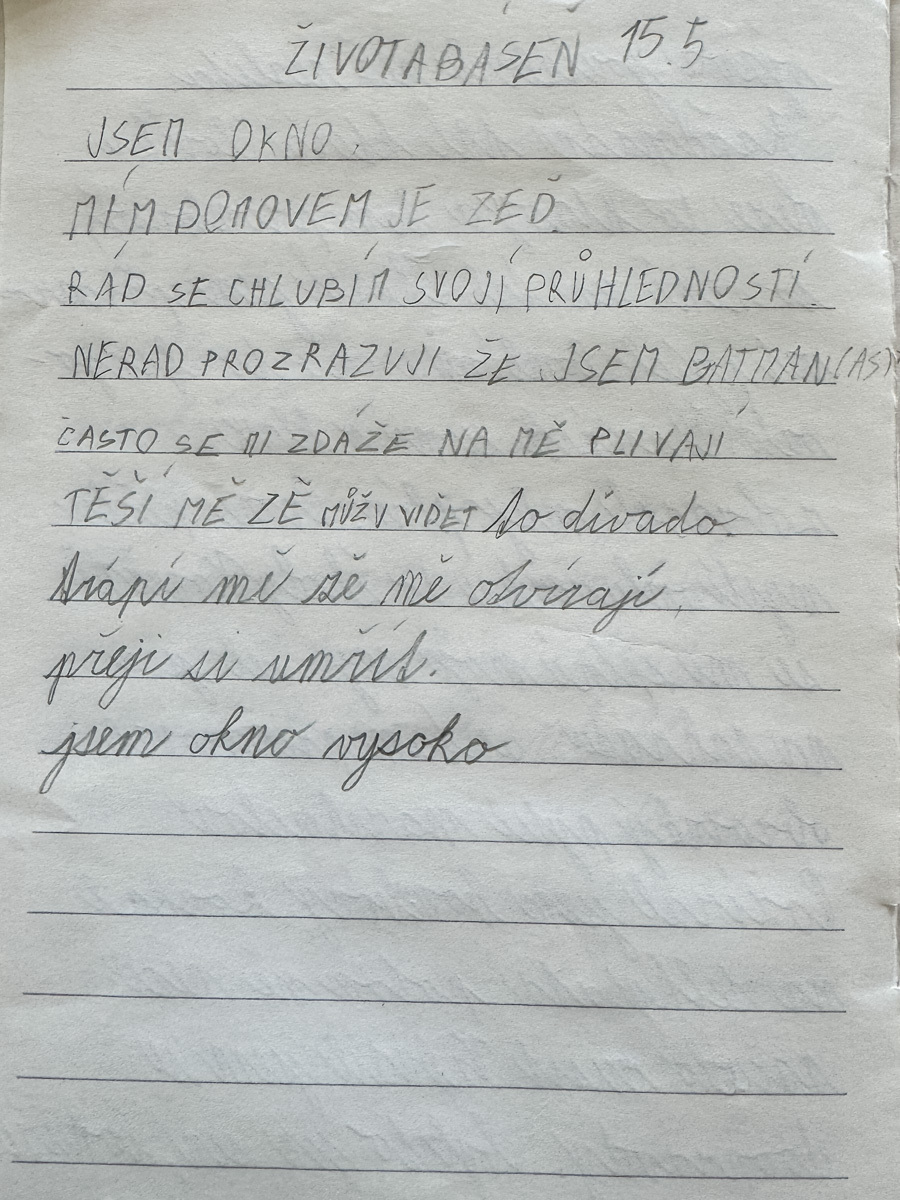 ŽIVOTABÁSEŇ 15.5
JSEM OKNO.
MÍM DOMOVEM JE ZEĎ.
RÁD SE CHLUBÍM SVOJÍ PRŮHLEDNOSTÍ.
NERAD PROZRAZUJI ŽE JSEM BATMAN(AS)
ČASTO SE MI ZDÁŽE NA MĚ PLIVAJÍ
TĚŠÍ MĚ ZĚ MŮŽU VIĎET to dívado.
trápí mě zě mě otvírají,
přeji si umřít.
jsem okno vysoko